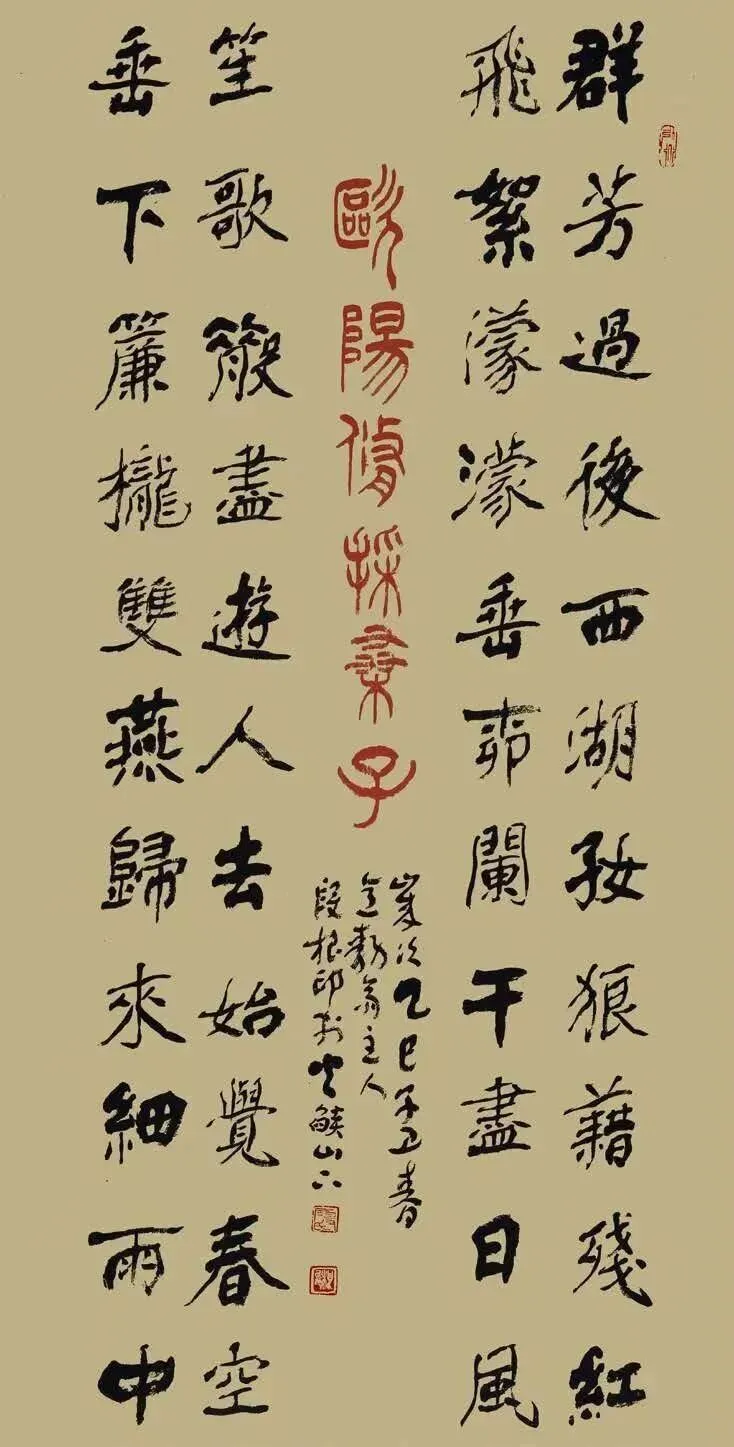 群芳過後西湖好狼藉殘紅
飛絮濛濛垂桺闌干盡日風
歐陽脩採桑子
歲次乙巳春
翁主人
段根印於山下
笙歌散盡遊人去始覺春空
垂下簾櫳雙燕歸來細雨中